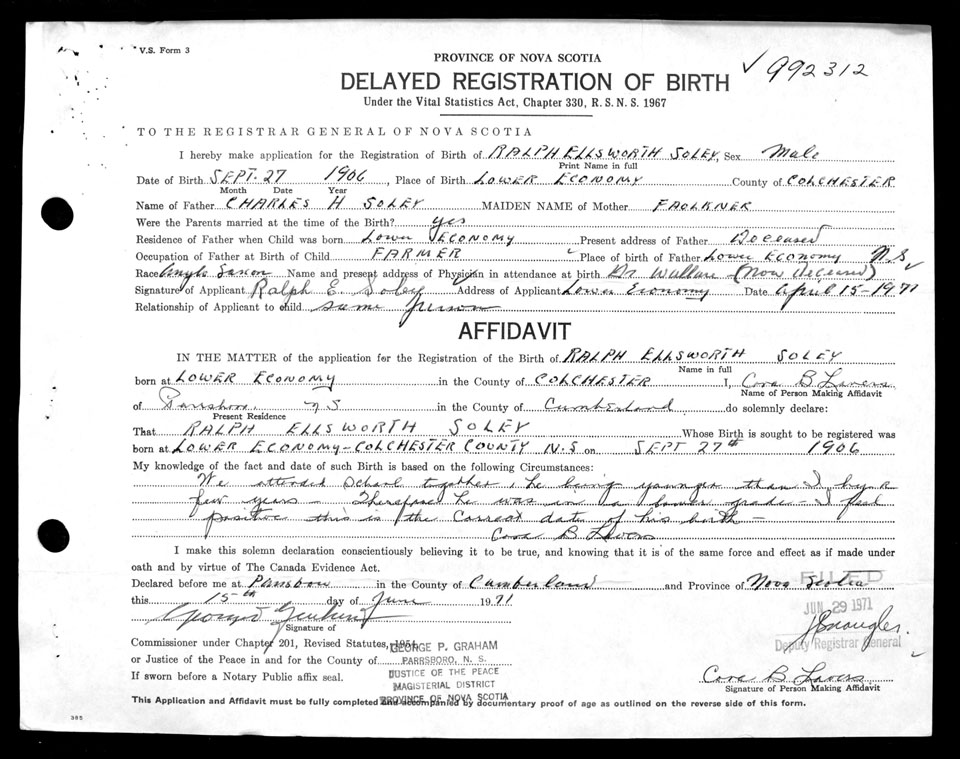 V.S. Form 3
PROVINCE OF NOVA SCOTIA
DELAYED REGISTRATION OF BIRTH
✓992312
Under the Vital Statistics Act, Chapter 330, R.S.N.S. 1967
TO THE REGISTRAR GENERAL OF NOVA SCOTIA
I hereby make application for the Registration of Birth of RALPH ELLSWORTH SOLEY, Sex Male
Print Name in full
Date of Birth SEPT. 27 1906, Place of Birth LOWER ECONOMY County of COLCHESTER
Month Date Year
Name of Father CHARLES H SOLEY MAIDEN NAME of Mother FAULKNER
Were the Parents married at the time of the Birth? yes
Residence of Father when Child was born LOWER ECONOMY Present address of Father Deceased
Occupation of Father at Birth of Child FARMER Place of birth of Father Lower Economy N.S.
Race Anglo Saxon Name and present address of Physician in attendance at birth Dr Wallace (Now deceased)
Signature of Applicant Ralph E. Soley Address of Applicant Lower Economy Date April 15-1971
Relationship of Applicant to child same person
AFFIDAVIT
IN THE MATTER of the application for the Registration of the Birth of RALPH ELLSWORTH SOLEY
Name in full
born at LOWER ECONOMY in the County of COLCHESTER I, Cora B Lavers
Name of Person Making Affidavit
of Parrsboro, N S in the County of Cumberland do solemnly declare:
Present Residence
That RALPH ELLSWORTH SOLEY Whose Birth is sought to be registered was
born at LOWER ECONOMY-COLCHESTER COUNTY N.S on SEPT 27th 1906
My knowledge of the fact and date of such Birth is based on the following Circumstances:
We attended School together, he being younger than I by a
few years - Therefore he was in a lower grade - I feel
positive this is the correct date of his birth -
Cora B Lavers
I make this solemn declaration conscientiously believing it to be true, and knowing that it is of the same force and effect as if made under
oath and by virtue of The Canada Evidence Act.
Declared before me at Parrsboro in the County of Cumberland and Province of Nova Scotia
FILED
this 15th day of June 1971
JUN 29 1971
Signature of
Deputy Registrar General
Commissioner under Chapter 201, Revised Statutes, 1954
GEORGE P. GRAHAM
or Justice of the Peace in and for the County of
PARRSBORO, N. S.
If sworn before a Notary Public affix seal.
JUSTICE OF THE PEACE
MAGISTERIAL DISTRICT
PROVINCE OF NOVA SCOTIA
Cora B Lavers
Signature of Person Making Affidavit
This Application and Affidavit must be fully completed and accompanied by documentary proof of age as outlined on the reverse side of this form.
385